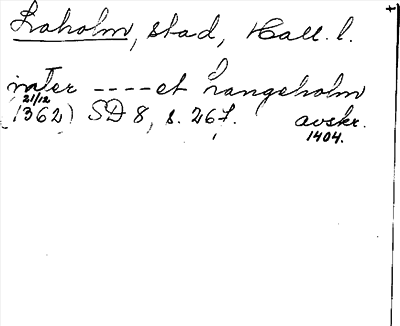 Laholm, stad, Hall. l.
inter ----et Langeholm
21/12
(1362) SD 8, s. 267. avskr.
1404.